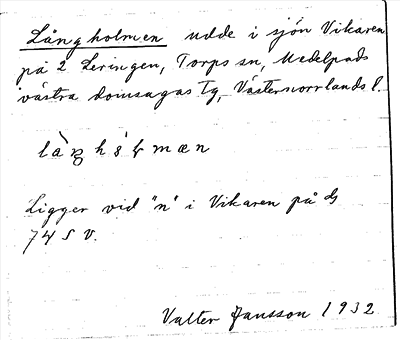 Långholmen udde i sjön Vikaren
på 2 Leringen, Torps sn, Medelpads
västra domsagas tg, Västernorrlands l.
Ligger vid "n" i Vikaren på
74 S V.
Valter Jansson 1932